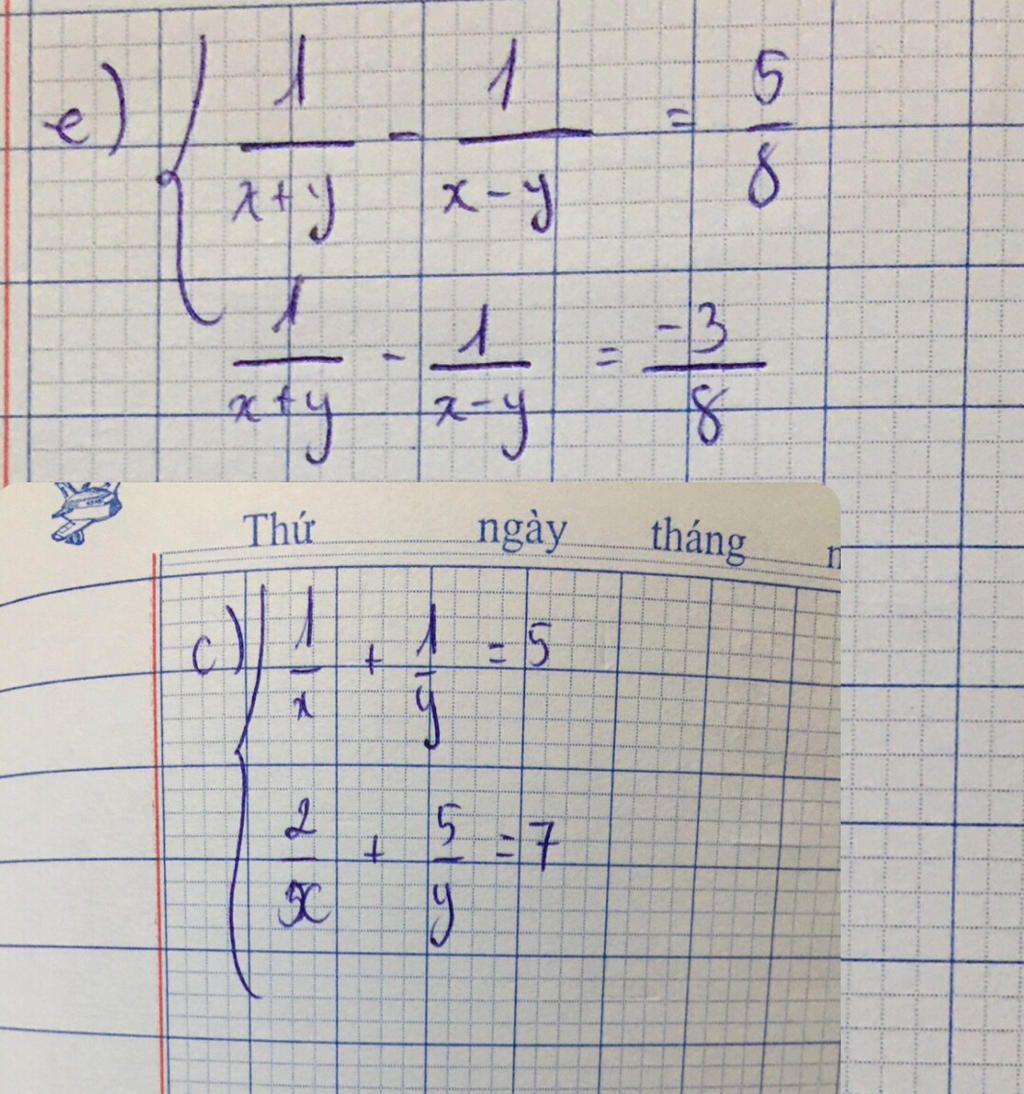 e) { 1/(x+y) - 1/(x-y) = 5/8
1/(x+y) - 1/(x-y) = -3/8
Thứ ngày tháng n
c) { 1/x + 1/y = 5
2/x + 5/y = 7